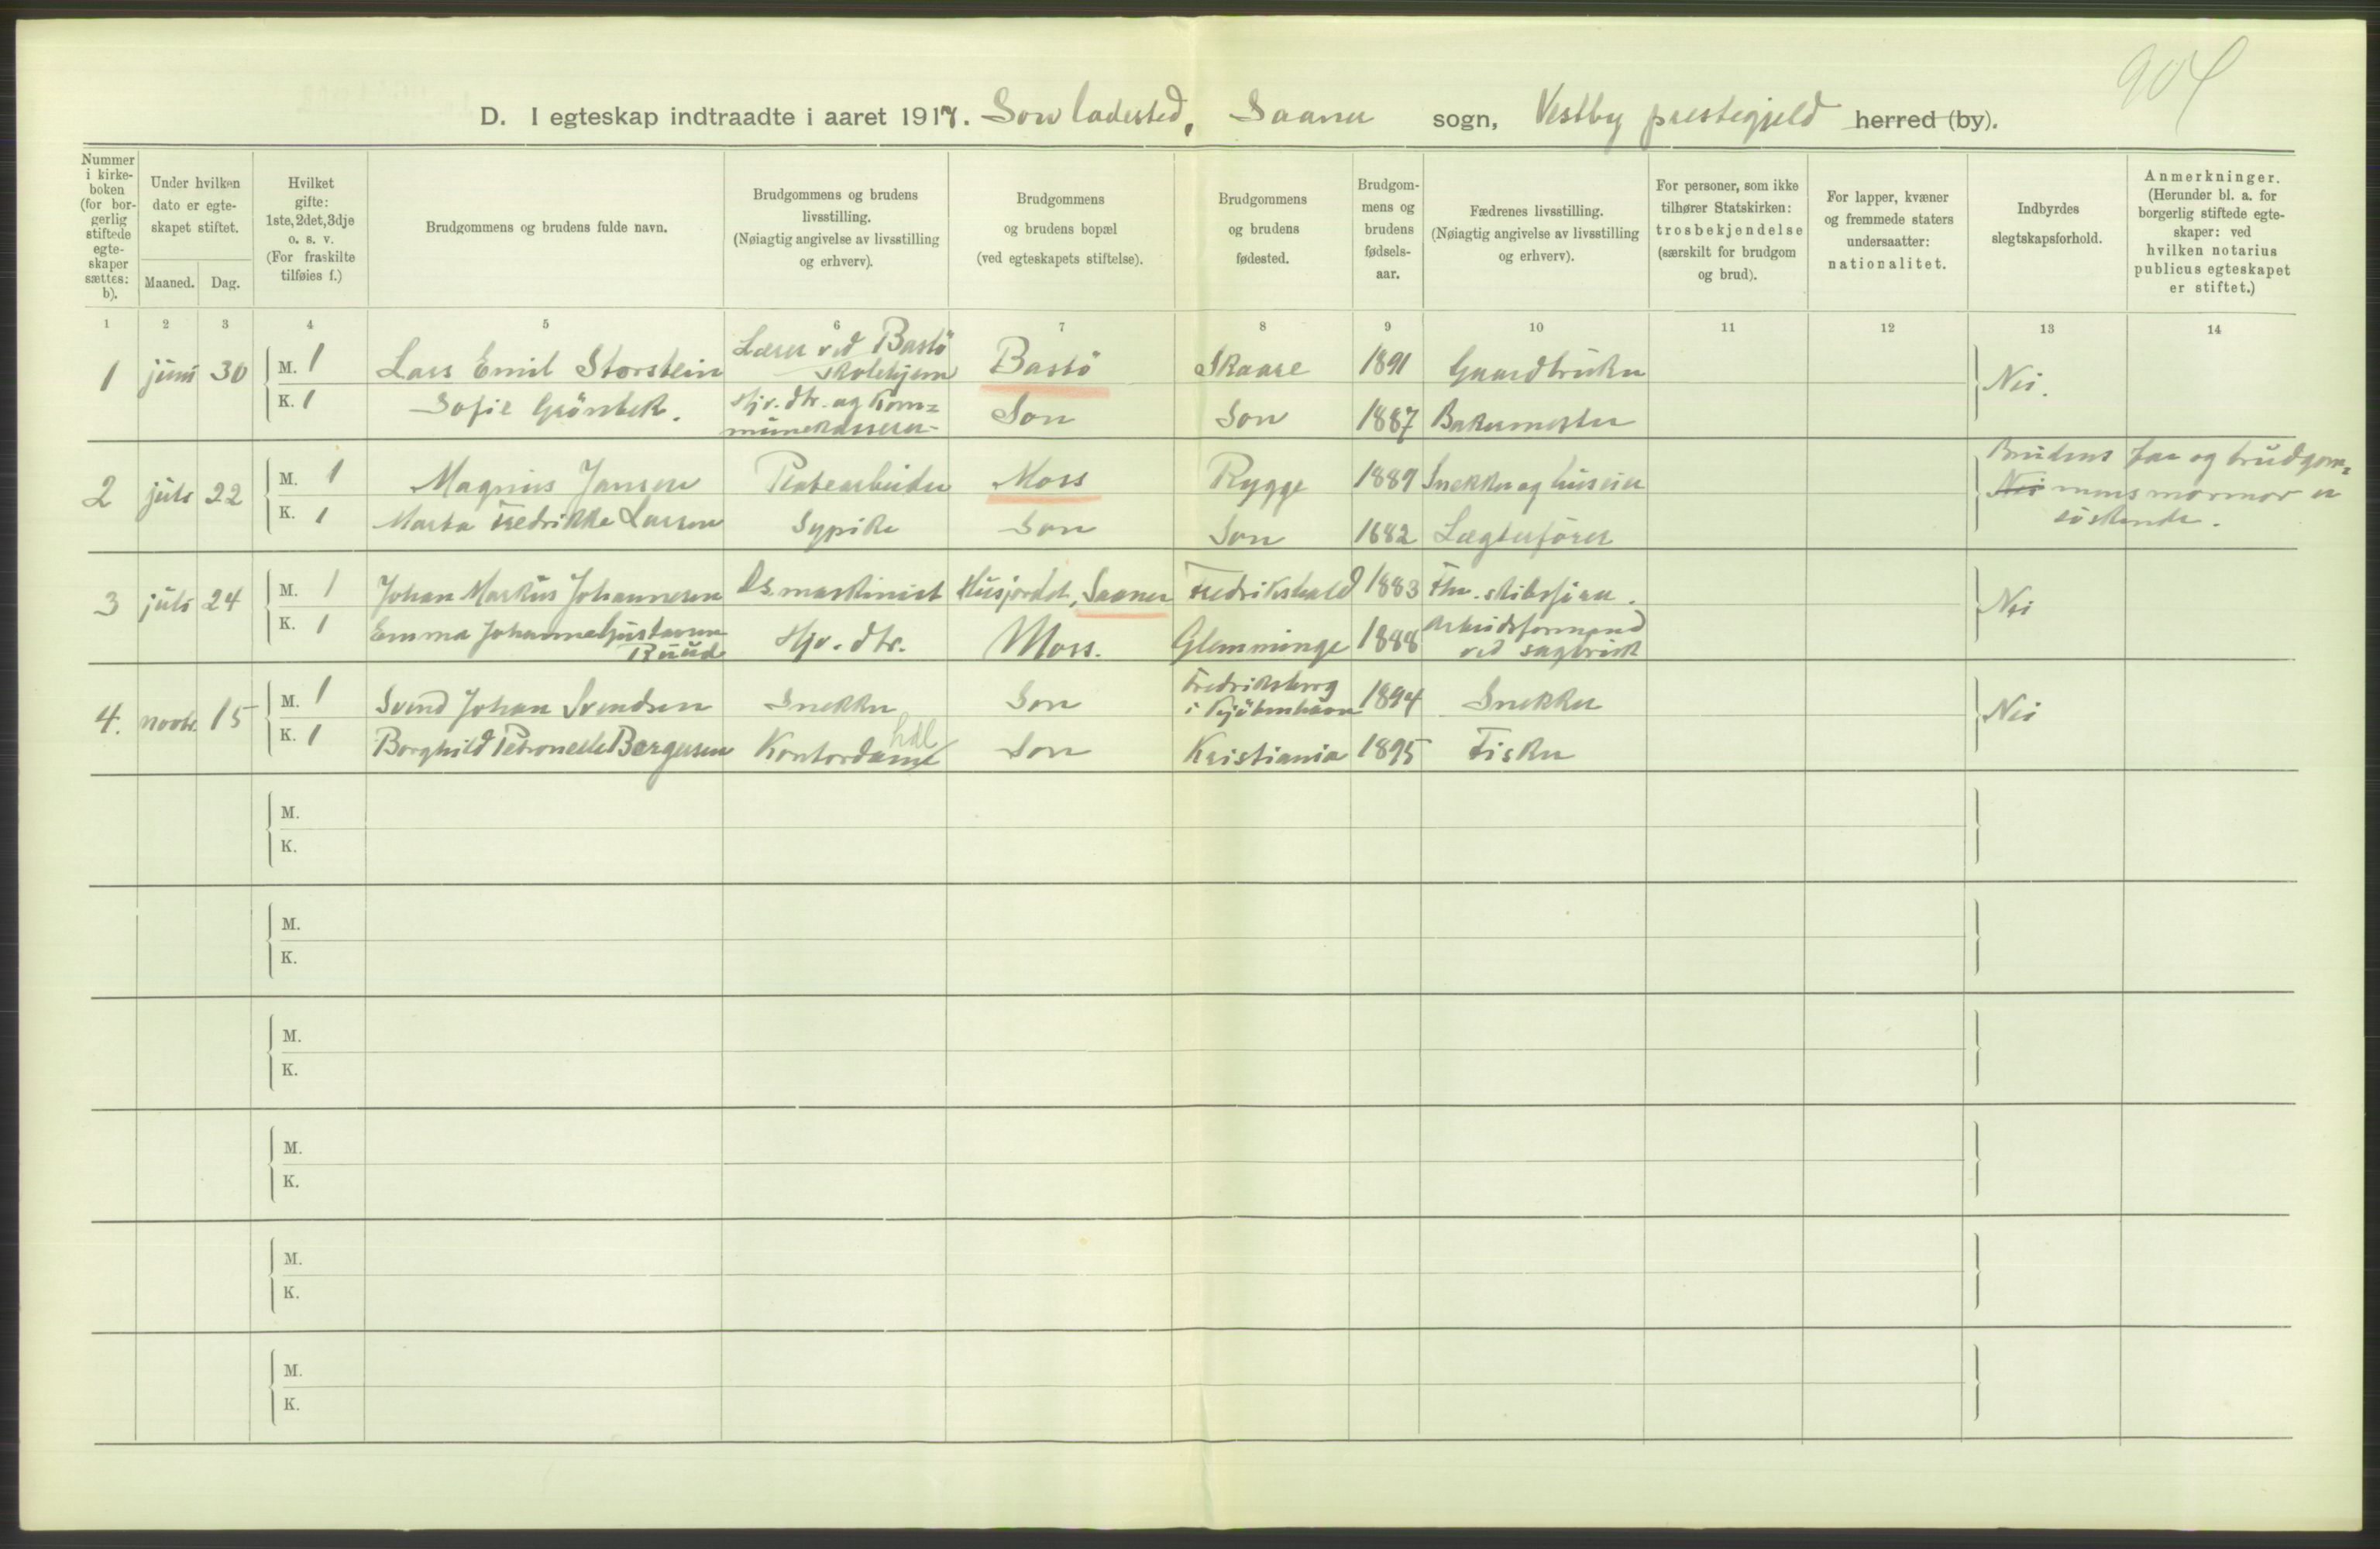 904
D. I egteskap indtraadte i aaret 1917. Son ladested, Saaner sogn, Vestby prestegjeld herred (by).
Nummer i kirke-boken (for bor-gerlig stiftede egte-skaper sættes: b).
Under hvilken dato er egte-skapet stiftet.
Maaned. Dag.
Hvilket gifte: 1ste, 2det, 3dje o. s. v. (For fraskilte tilføies f.)
Brudgommens og brudens fulde navn.
Brudgommens og brudens livsstilling. (Nøiagtig angivelse av livsstilling og erhverv).
Brudgommens og brudens bopæl (ved egteskapets stiftelse).
Brudgommens og brudens fødested.
Brudgom-mens og brudens fødsels-aar.
Fædrenes livsstilling. (Nøiagtig angivelse av livsstilling og erhverv).
For personer, som ikke tilhører Statskirken: trosbekjendelse (særskilt for brudgom og brud).
For lapper, kvæner og fremmede staters undersaatter: nationalitet.
Indbyrdes slegtskapsforhold.
Anmerkninger. (Herunder bl. a. for borgerlig stiftede egte-skaper: ved hvilken notarius publicus egteskapet er stiftet.)
1 2 3 4 5 6 7 8 9 10 11 12 13 14
1 juni 30 M. 1 Lars Emil Storstein Lærer ved Bastö skolehjem Bastö Skaare 1891 Gaardbruker Nei.
K. 1 Sofie Grönbek. Hjv. dtr. og kom=munekasserer Son Son 1887 Bakermester
2 juli 22 M. 1 Magnus Jansen Platearbeider Moss Rygge 1889 Snekker og huseier Nei Brudens far og brudgom=mens mormor er söskende.
K. 1 Marta Fredrikke Larsen Sypike Son Son 1882 Lægterförer
3 juli 24 M. 1 Johan Markus Johannesen Ds. maskinist Husjordet, Saaner Fredrikshald 1883 Fhv. skibsförer. Nei
K. 1 Emma Johanne Gustavsen Ruud Hjv. dtr. Moss. Glemminge 1888 Arbeidsformand ved sagbruk
4. novbr. 15 M. 1 Svend Johan Svendsen Snekker Son Fredriksberg i Kjöbenhavn 1894 Snekker Nei
K. 1 Borghild Petronelle Bergersen Kontordame hdl Son Kristiania 1895 Fisker
M.
K.
M.
K.
M.
K.
M.
K.
M.
K.
M.
K.